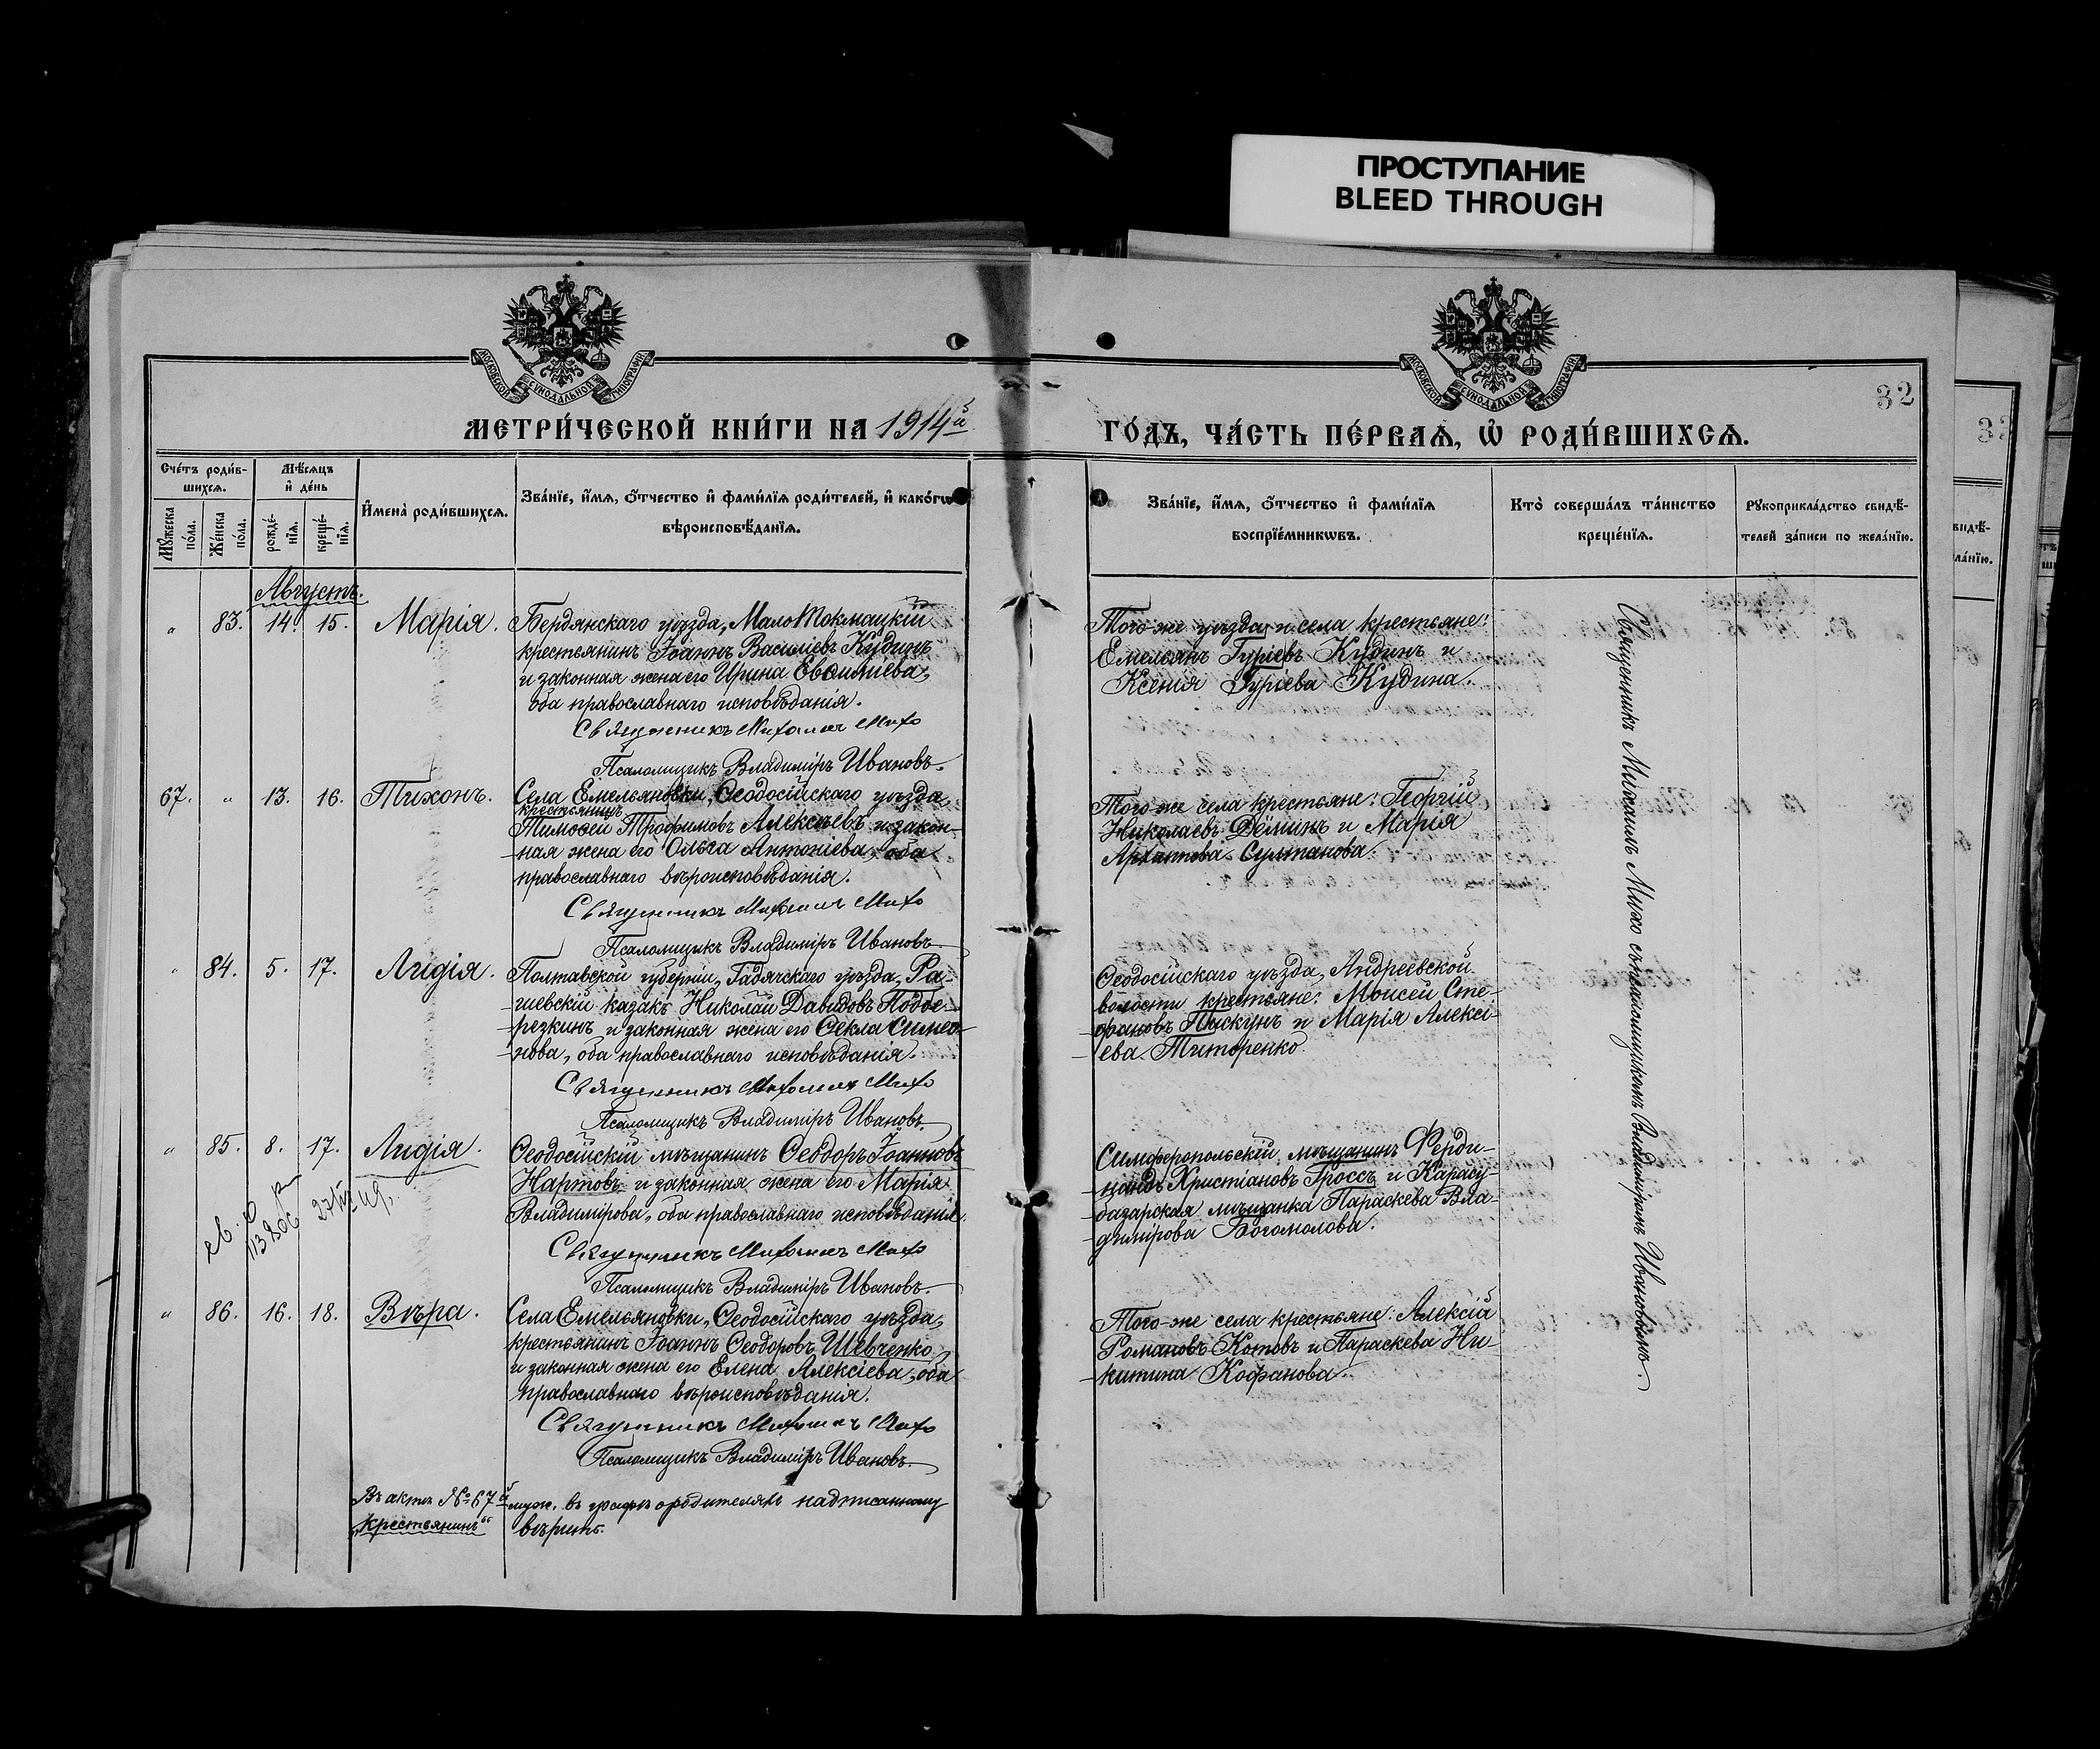 ПРОСТУПАНИЕ
BLEED THROUGH
МОСКОВСКОЙ СѴНОДАЛЬНОЙ ТИПОГРАФІИ
МОСКОВСКОЙ СѴНОДАЛЬНОЙ ТИПОГРАФІИ
32
МЕТРИ́ЧЕСКОЙ КНИ́ГИ НА 1914й
ГО́ДЪ, ЧА́СТЬ ПЕ́РВАѦ, Ѽ РОДИ́ВШИХСѦ.
Сче́тъ роди́в-
шихсѧ.
Мѣ́сѧцъ
и҆ де́нь
Мꙋ́жеска
по́ла.
Же́нска
по́ла.
рожде́-
нїѧ.
креще́-
нїѧ.
И҆мена̀ роди́вшихсѧ.
Зва́нїе, и҆́мѧ, ѻ҆́тчество и҆ фами́лїѧ роди́телей, и҆ како́гѡ
вѣроисповѣ́данїѧ.
Зва́нїе, и҆́мѧ, ѻ҆́тчество и҆ фами́лїѧ
воспрїе́мникѡвъ.
Кто̀ соверша́лъ та́инство
креще́нїѧ.
Рꙋкоприкла́дство свидѣ́-
телей за́писи по жела́нїю.
Августъ.
" 83. 14. 15. Марія.
Бердянскаго уѣзда, МалоТокмацкій
крестьянинъ Іоаннъ Василіевъ Кудинъ
и законная жена его Ирина Евѳиміева,
оба православнаго исповѣданія.
Священникъ Михаилъ Михо
Псаломщикъ Владиміръ Ивановъ.
Того-же уѣзда и села крестьяне:
Емельянъ Гуріевъ Кудинъ и
Ксенія Гуріева Кудина.
67. " 13. 16. Тихонъ.
Села Емельяновки, Ѳеодосійскаго уѣзда,
крестьянинъ
Тимоѳей Трофимовъ Алексѣевъ и закон-
-ная жена его Ольга Антоніева, оба
православнаго вѣроисповѣданія.
Священникъ Михаилъ Михо
Псаломщикъ Владиміръ Ивановъ.
Того-же села крестьяне: Георгій
Николаевъ Дёминъ и Марія
Архиппова Султанова.
" 84. 5. 17. Лидія.
Полтавской губерніи, Гадячскаго уѣзда, Ра-
-шевскій казакъ Николай Давидовъ Подбе-
-резкинъ и законная жена его Ѳекла Симео-
-нова, оба православнаго исповѣданія.
Священникъ Михаилъ Михо
Псаломщикъ Владиміръ Ивановъ.
Ѳеодосійскаго уѣзда, Андреевской
волости крестьяне: Моисей Сте-
-фановъ Пискунъ и Марія Алексі-
-ева Титоренко.
" 85. 8. 17. Лидія.
Ѳеодосійскій мѣщанинъ Ѳеодоръ Іоанновъ
Нартовъ и законная жена его Марія
Владимірова, оба православнаго исповѣданія.
Священникъ Михаилъ Михо
Псаломщикъ Владиміръ Ивановъ.
Симферопольскій мѣщанинъ Ферди-
-нандъ Христіановъ Гроссъ и Карасу-
-базарская мѣщанка Параскева Вла-
-димірова Богомолова.
" 86. 16. 18. Вѣра.
Села Емельяновки, Ѳеодосійскаго уѣзда,
крестьянинъ Іоаннъ Ѳеодоровъ Шевченко
и законная жена его Елена Алексіева, оба
православнаго вѣроисповѣданія.
Священникъ Михаилъ Михо
Псаломщикъ Владиміръ Ивановъ.
Того-же села крестьяне: Алексій
Романовъ Котовъ и Параскева Ни-
-китина Кофанова.
Священникъ Михаилъ Михо съ псаломщикомъ Владиміромъ Ивановымъ.
Въ актѣ № 67й муж. въ графѣ о родителяхъ надписанному
„крестьянинъ“ вѣрить.